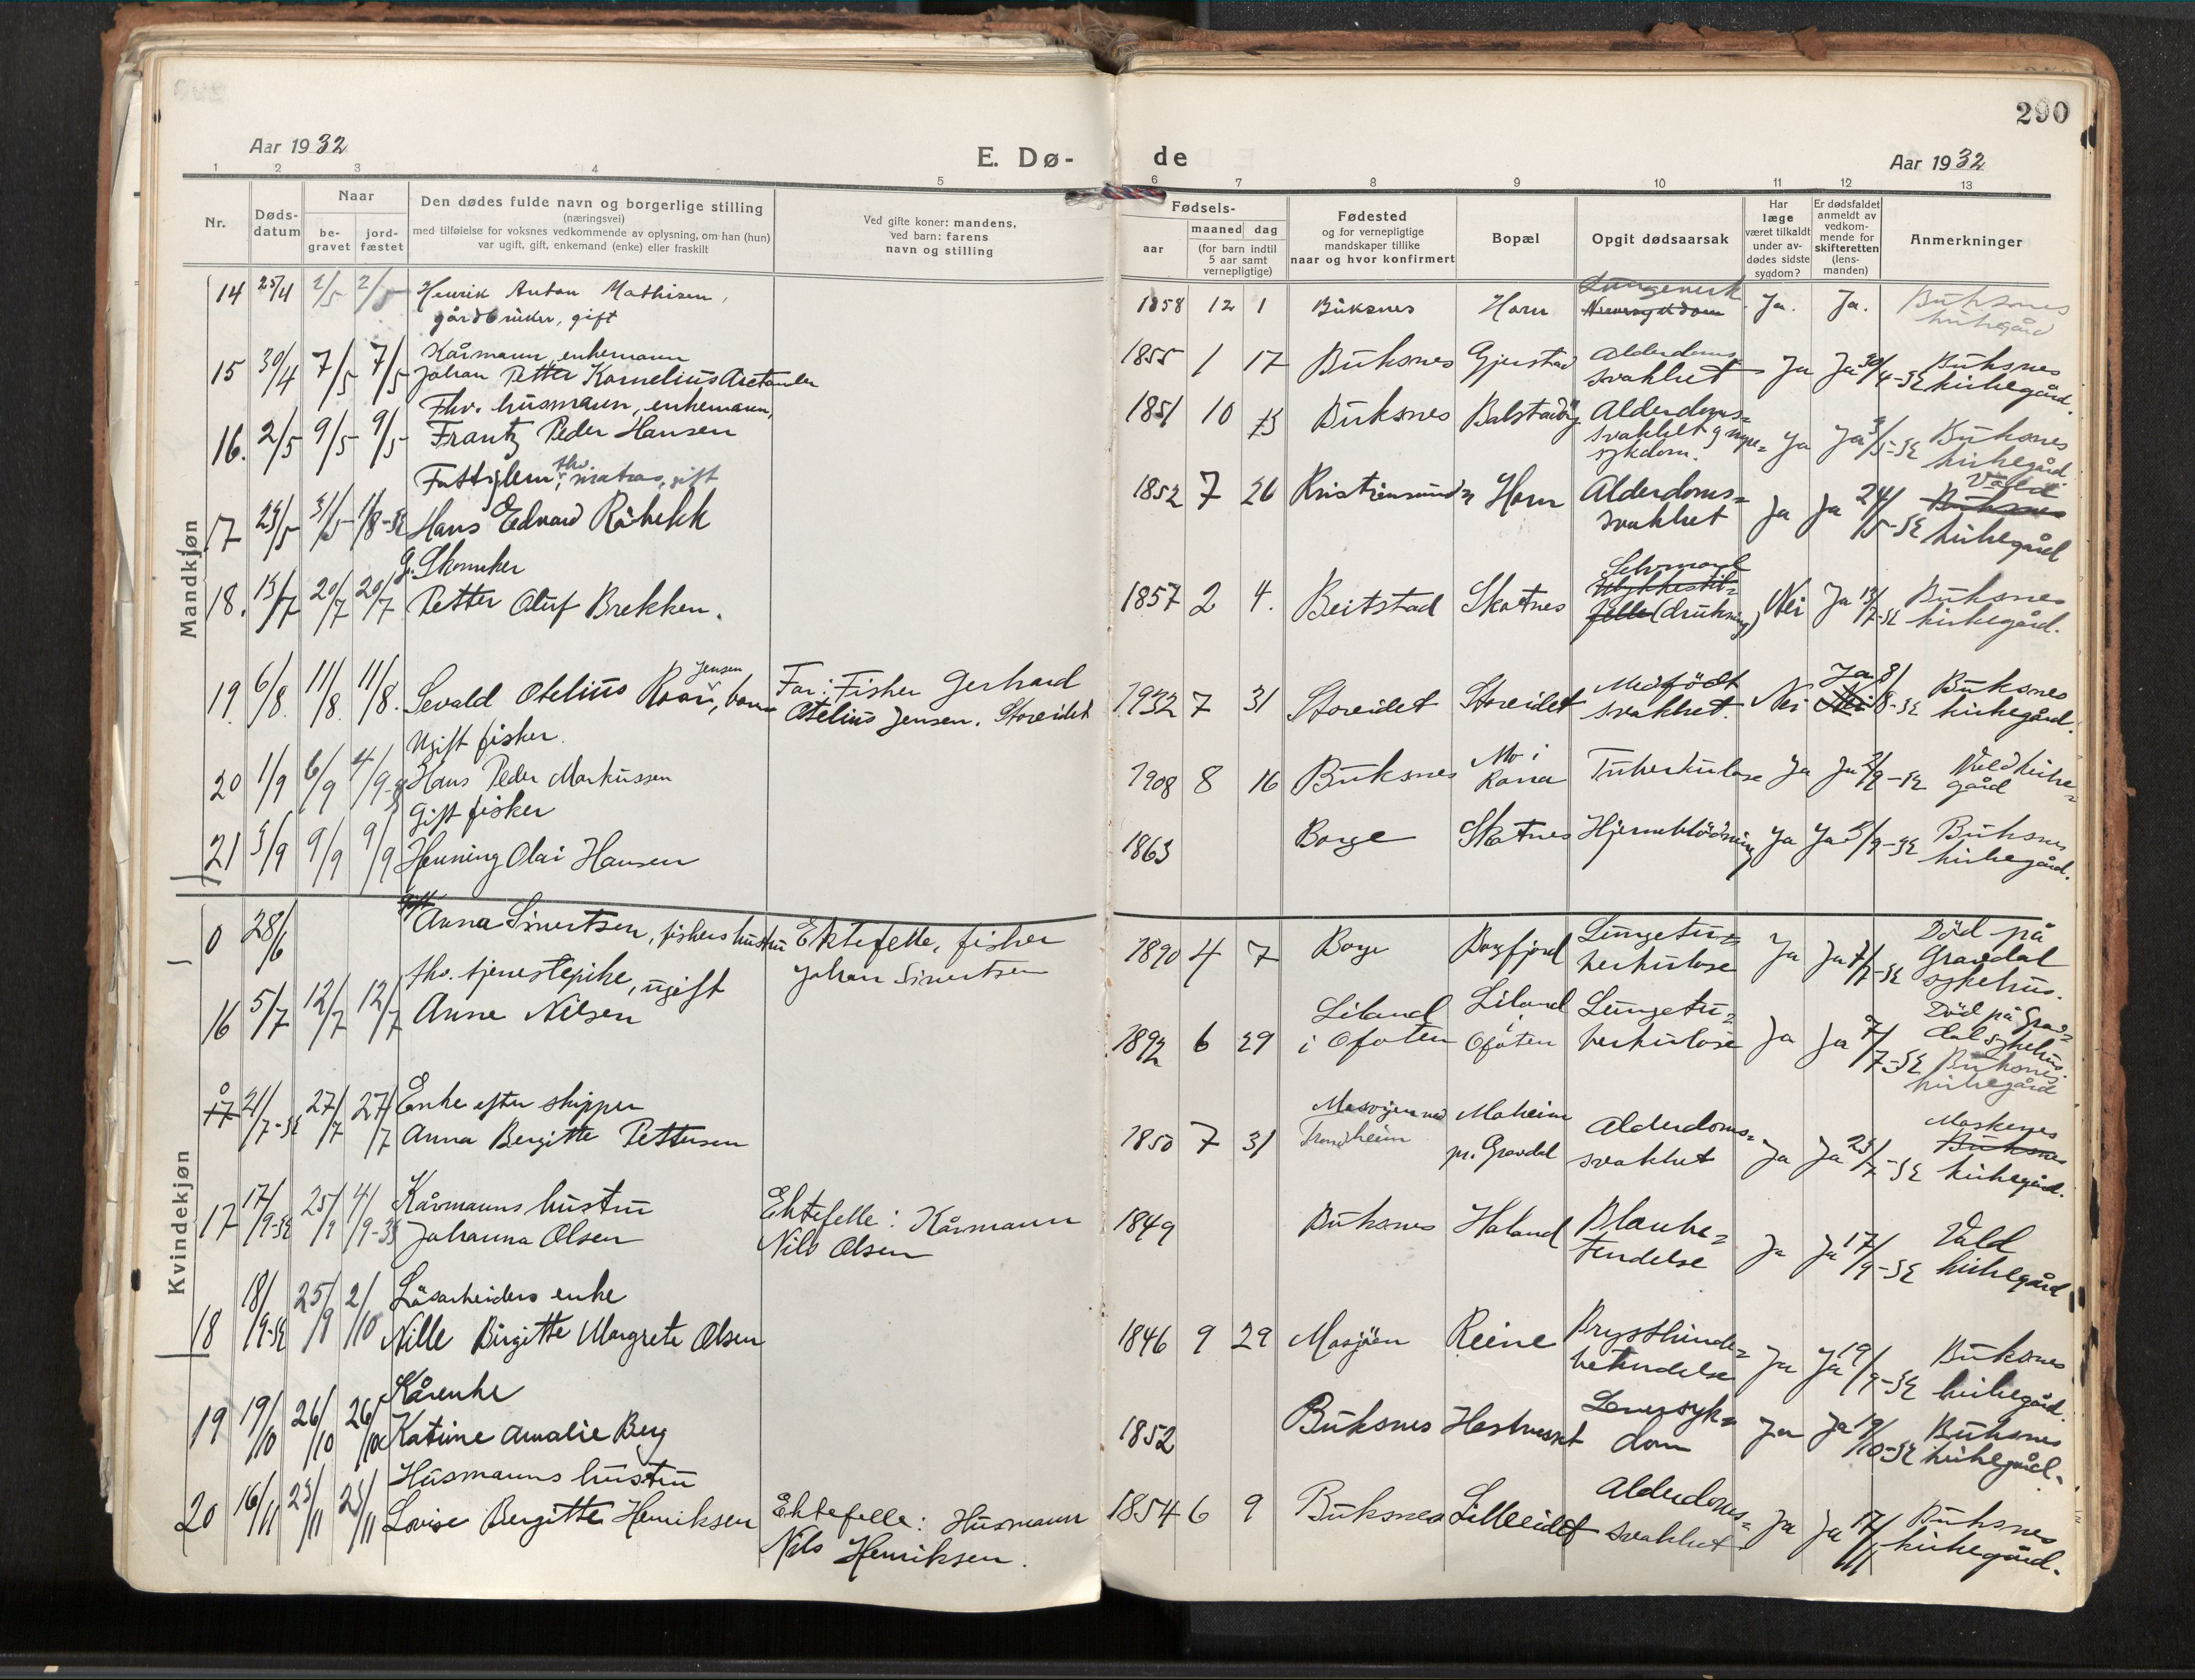 290
Aar 1932
E. Dø-
de
Aar 1932
1 2 3 4 5 6 7 8 9 10 11 12 13
Nr.
Døds-
datum
Naar
be-
gravet
jord-
fæstet
Den dødes fulde navn og borgerlige stilling
(næringsvei)
med tilføielse for voksnes vedkommende av oplysning, om han (hun)
var ugift, gift, enkemand (enke) eller fraskilt
Ved gifte koner: mandens,
ved barn: farens
navn og stilling
Fødsels-
aar
maaned dag
(for barn indtil
5 aar samt
vernepligtige)
Fødested
og for vernepligtige
mandskaper tillike
naar og hvor konfirmert
Bopæl
Opgit dødsaarsak
Har
læge
været tilkaldt
under av-
dødes sidste
sygdom?
Er dødsfaldet
anmeldt av
vedkom-
mende for
skifteretten
(lens-
manden)
Anmerkninger
Mandkjøn
14 25/4 2/5 2/5 Henrik Anton Mathisen,
gårdbruker, gift
1858 12 1 Buksnes Horn Lungeverk Ja. Ja. Buksnes
kirkegård
15 30/4 7/5 7/5 Kårmann, enkemann
Johan Petter Kornelius
1855 1 17 Buksnes Gjerstad Alderdoms-
svakhet Ja Ja 30/4-32 Buksnes
kirkegård.
16. 2/5 9/5 9/5 Fhv. husmann, enkemann,
Frantz Peder Hansen
1851 10 Buksnes Alderdoms=
svakhet
sykdom. Ja Ja /5-32 Buksnes
kirkegård
17 23/5 31/5 1/8-32 Fattiglem, fhv. matros, gift
Hans Edvard Röbekk
1852 7 26 Kristiansund N Horn Alderdoms=
svakhet Ja Ja 24/5-32 Vold
Buksnes
kirkegård
18. 13/7 20/7 20/7 G. Skomaker
Petter Oluf Brekken.
1857 2 4. Beitstad Skotnes Selvmord
Ulykkestil=
felle (drukning) Nei Ja 13/7-32 Buksnes
kirkegård.
19. 6/8. 11/8. 11/8. Sevald Otelius Roar Jensen, barn
Far: Fisker Gerhard
Otelius Jensen. Storeidet
1932 7 31 Storeidet Storeidet Medfödt
svakhet. Nei Nei Ja 8/8-32 Buksnes
kirkegård.
20 1/9 6/9 Ugift fisker.
Hans Peder Markussen
1908 8 16 Buksnes Mo i
Rana Tuberkulose Ja Ja 2/9-32 Vold kirke=
gård
21 3/9 9/9 9/9 Gift fisker
Henning Olai Hansen
1863 Borge Skotnes Hjerneblödning Ja Ja 5/9-32 Buksnes
kirkegård.
Kvindekjøn
0 28/6 Anna Sivertsen, fiskers hustru
Ektefelle, fisker
Johan Sivertsen
1890 4 7 Borge Borgfjord Lungetu=
berkulose Ja Ja 7/7-32 Död på
Gravdal
sykehus.
16 5/7 12/7 12/7 fhv. tjenestepike, ugift
Anne Nilsen
1892 6 29 Liland
i Ofoten Liland
i
Ofoten Lungetu=
berkulose Ja Ja 7/7-32 Död på Grav=
dal sykehus.
Buksnes
kirkegård
0 17 21/7-32 27/7 27/7 Enke efter skipper
Anna Bergitte Pettersen
1850 7 31 Trondheim Moheim
pr. Gravdal Alderdoms=
svakhet Ja Ja 23/7-32 Moskenes
Buksnes
kirkegård.
17 17/9-32 25/9 4/9-33 Kårmanns hustru
Johanna Olsen
Ektefelle: Kårmann
Nils Olsen
1849 Buksnes Haland Blærebe=
tendelse Ja Ja 17/9-32 Vold
kirkegård
18 18/9-32 25/9 2/10 Lösarbeiders enke
Nille Birgitte Margrete Olsen
1846 9 29 Mosjöen Reine Brysthinde=
betendelse Ja Ja 19/9-32 Buksnes
kirkegård.
19 19/10 26/10 26/10 Kårenke
Katrine Amalie Berg
1852 Buksnes Leversyk=
dom Ja Ja 19/10-32 Buksnes
kirkegård.
20 16/11 23/11 23/11 Husmanns hustru
Lovise Bergitte Henriksen
Ektefelle: Husmann
Nils Henriksen.
1854 6 9 Buksnes Lilleeidet Alderdoms=
svakhet Ja Ja 17/11 Buksnes
kirkegård.